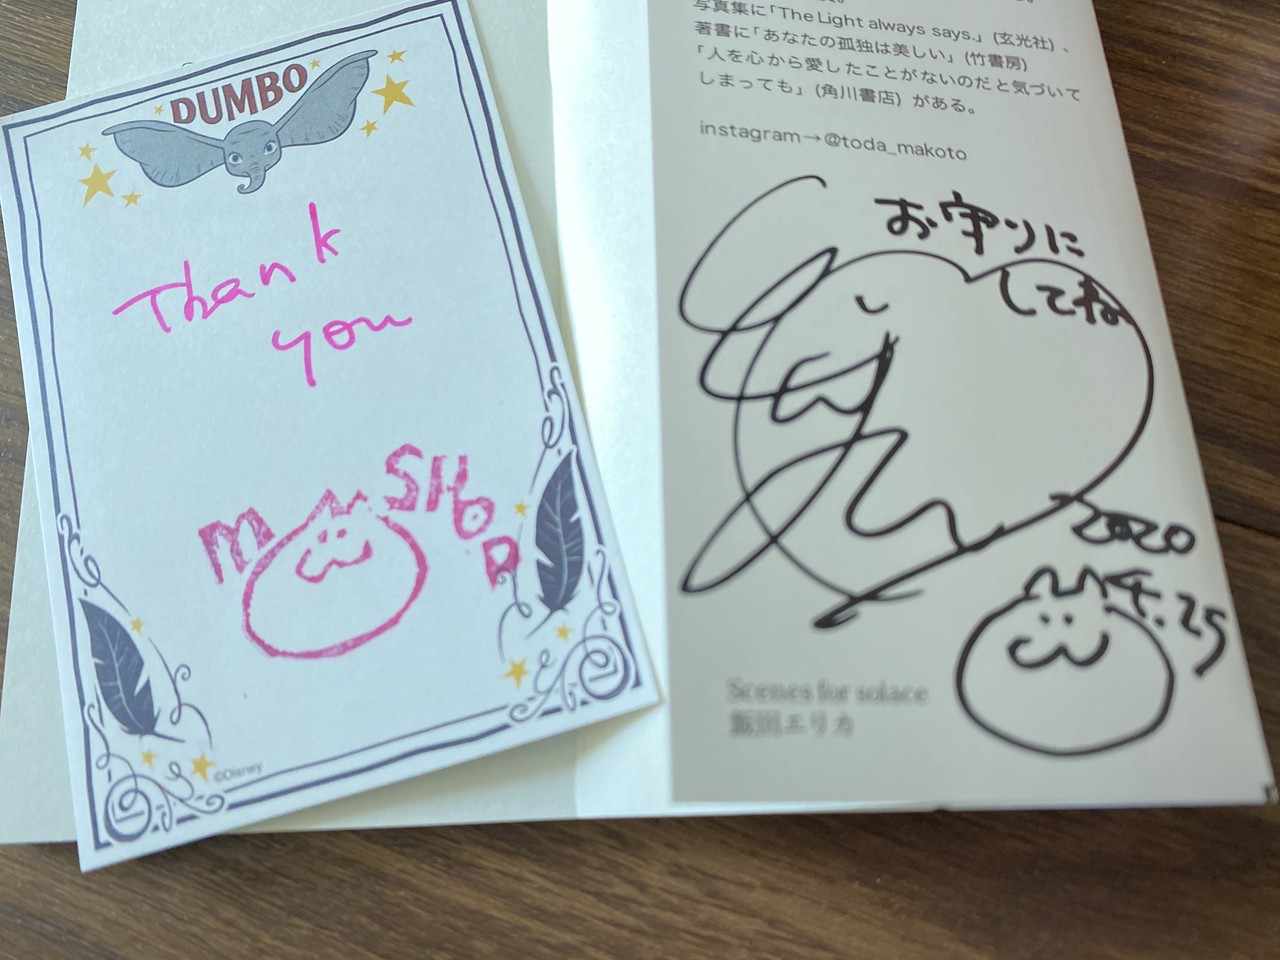 DUMBO
Thank
you
M SHOP
©Disney
写真集に「The Light always says.」(玄光社)、
著書に「あなたの孤独は美しい」(竹書房)
「人を心から愛したことがないのだと気づいて
しまっても」(角川書店) がある。
instagram→@toda_makoto
お守りに
してね
2020
4.25
Scenes for solace
飯田エリカ